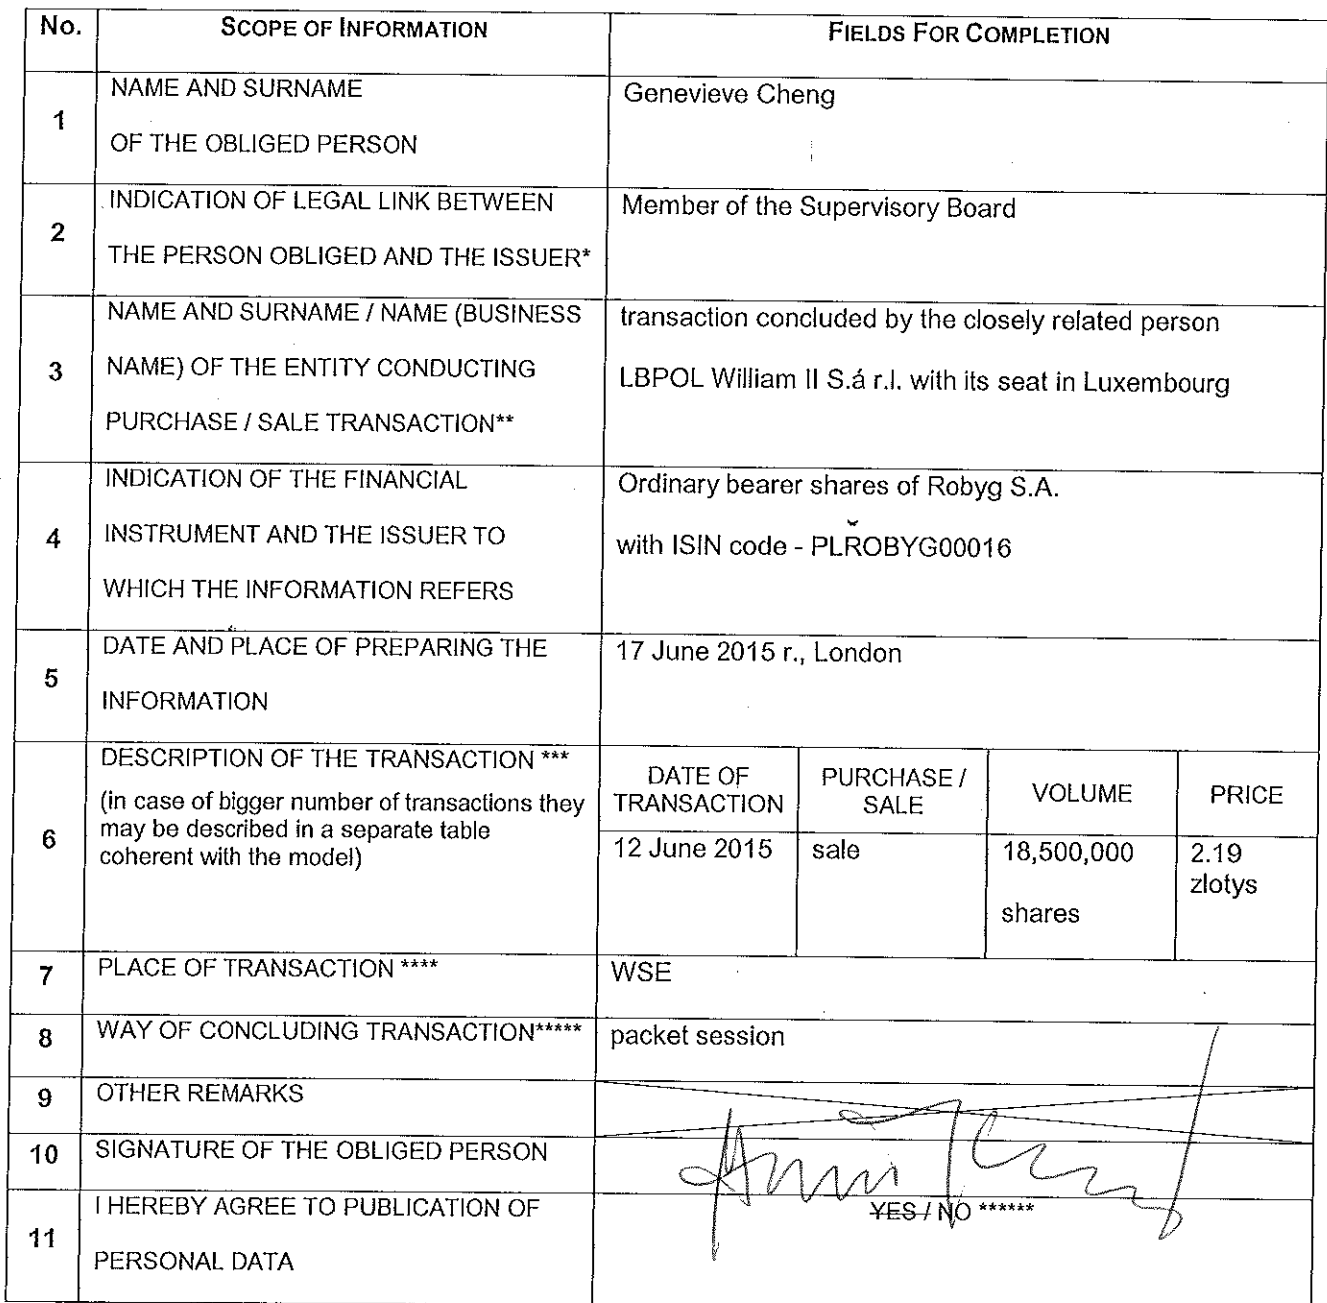 No. SCOPE OF INFORMATION FIELDS FOR COMPLETION
1
NAME AND SURNAME
OF THE OBLIGED PERSON
Genevieve Cheng
2
INDICATION OF LEGAL LINK BETWEEN
THE PERSON OBLIGED AND THE ISSUER*
Member of the Supervisory Board
3
NAME AND SURNAME / NAME (BUSINESS
NAME) OF THE ENTITY CONDUCTING
PURCHASE / SALE TRANSACTION**
transaction concluded by the closely related person
LBPOL William II S.á r.l. with its seat in Luxembourg
4
INDICATION OF THE FINANCIAL
INSTRUMENT AND THE ISSUER TO
WHICH THE INFORMATION REFERS
Ordinary bearer shares of Robyg S.A.
with ISIN code - PLROBYG00016
5
DATE AND PLACE OF PREPARING THE
INFORMATION
17 June 2015 r., London
6
DESCRIPTION OF THE TRANSACTION ***
(in case of bigger number of transactions they
may be described in a separate table
coherent with the model)
DATE OF
TRANSACTION
PURCHASE /
SALE
VOLUME
PRICE
12 June 2015
sale
18,500,000
shares
2.19
zlotys
7
PLACE OF TRANSACTION ****
WSE
8
WAY OF CONCLUDING TRANSACTION*****
packet session
9
OTHER REMARKS
10
SIGNATURE OF THE OBLIGED PERSON
11
I HEREBY AGREE TO PUBLICATION OF
PERSONAL DATA
YES / NO ******